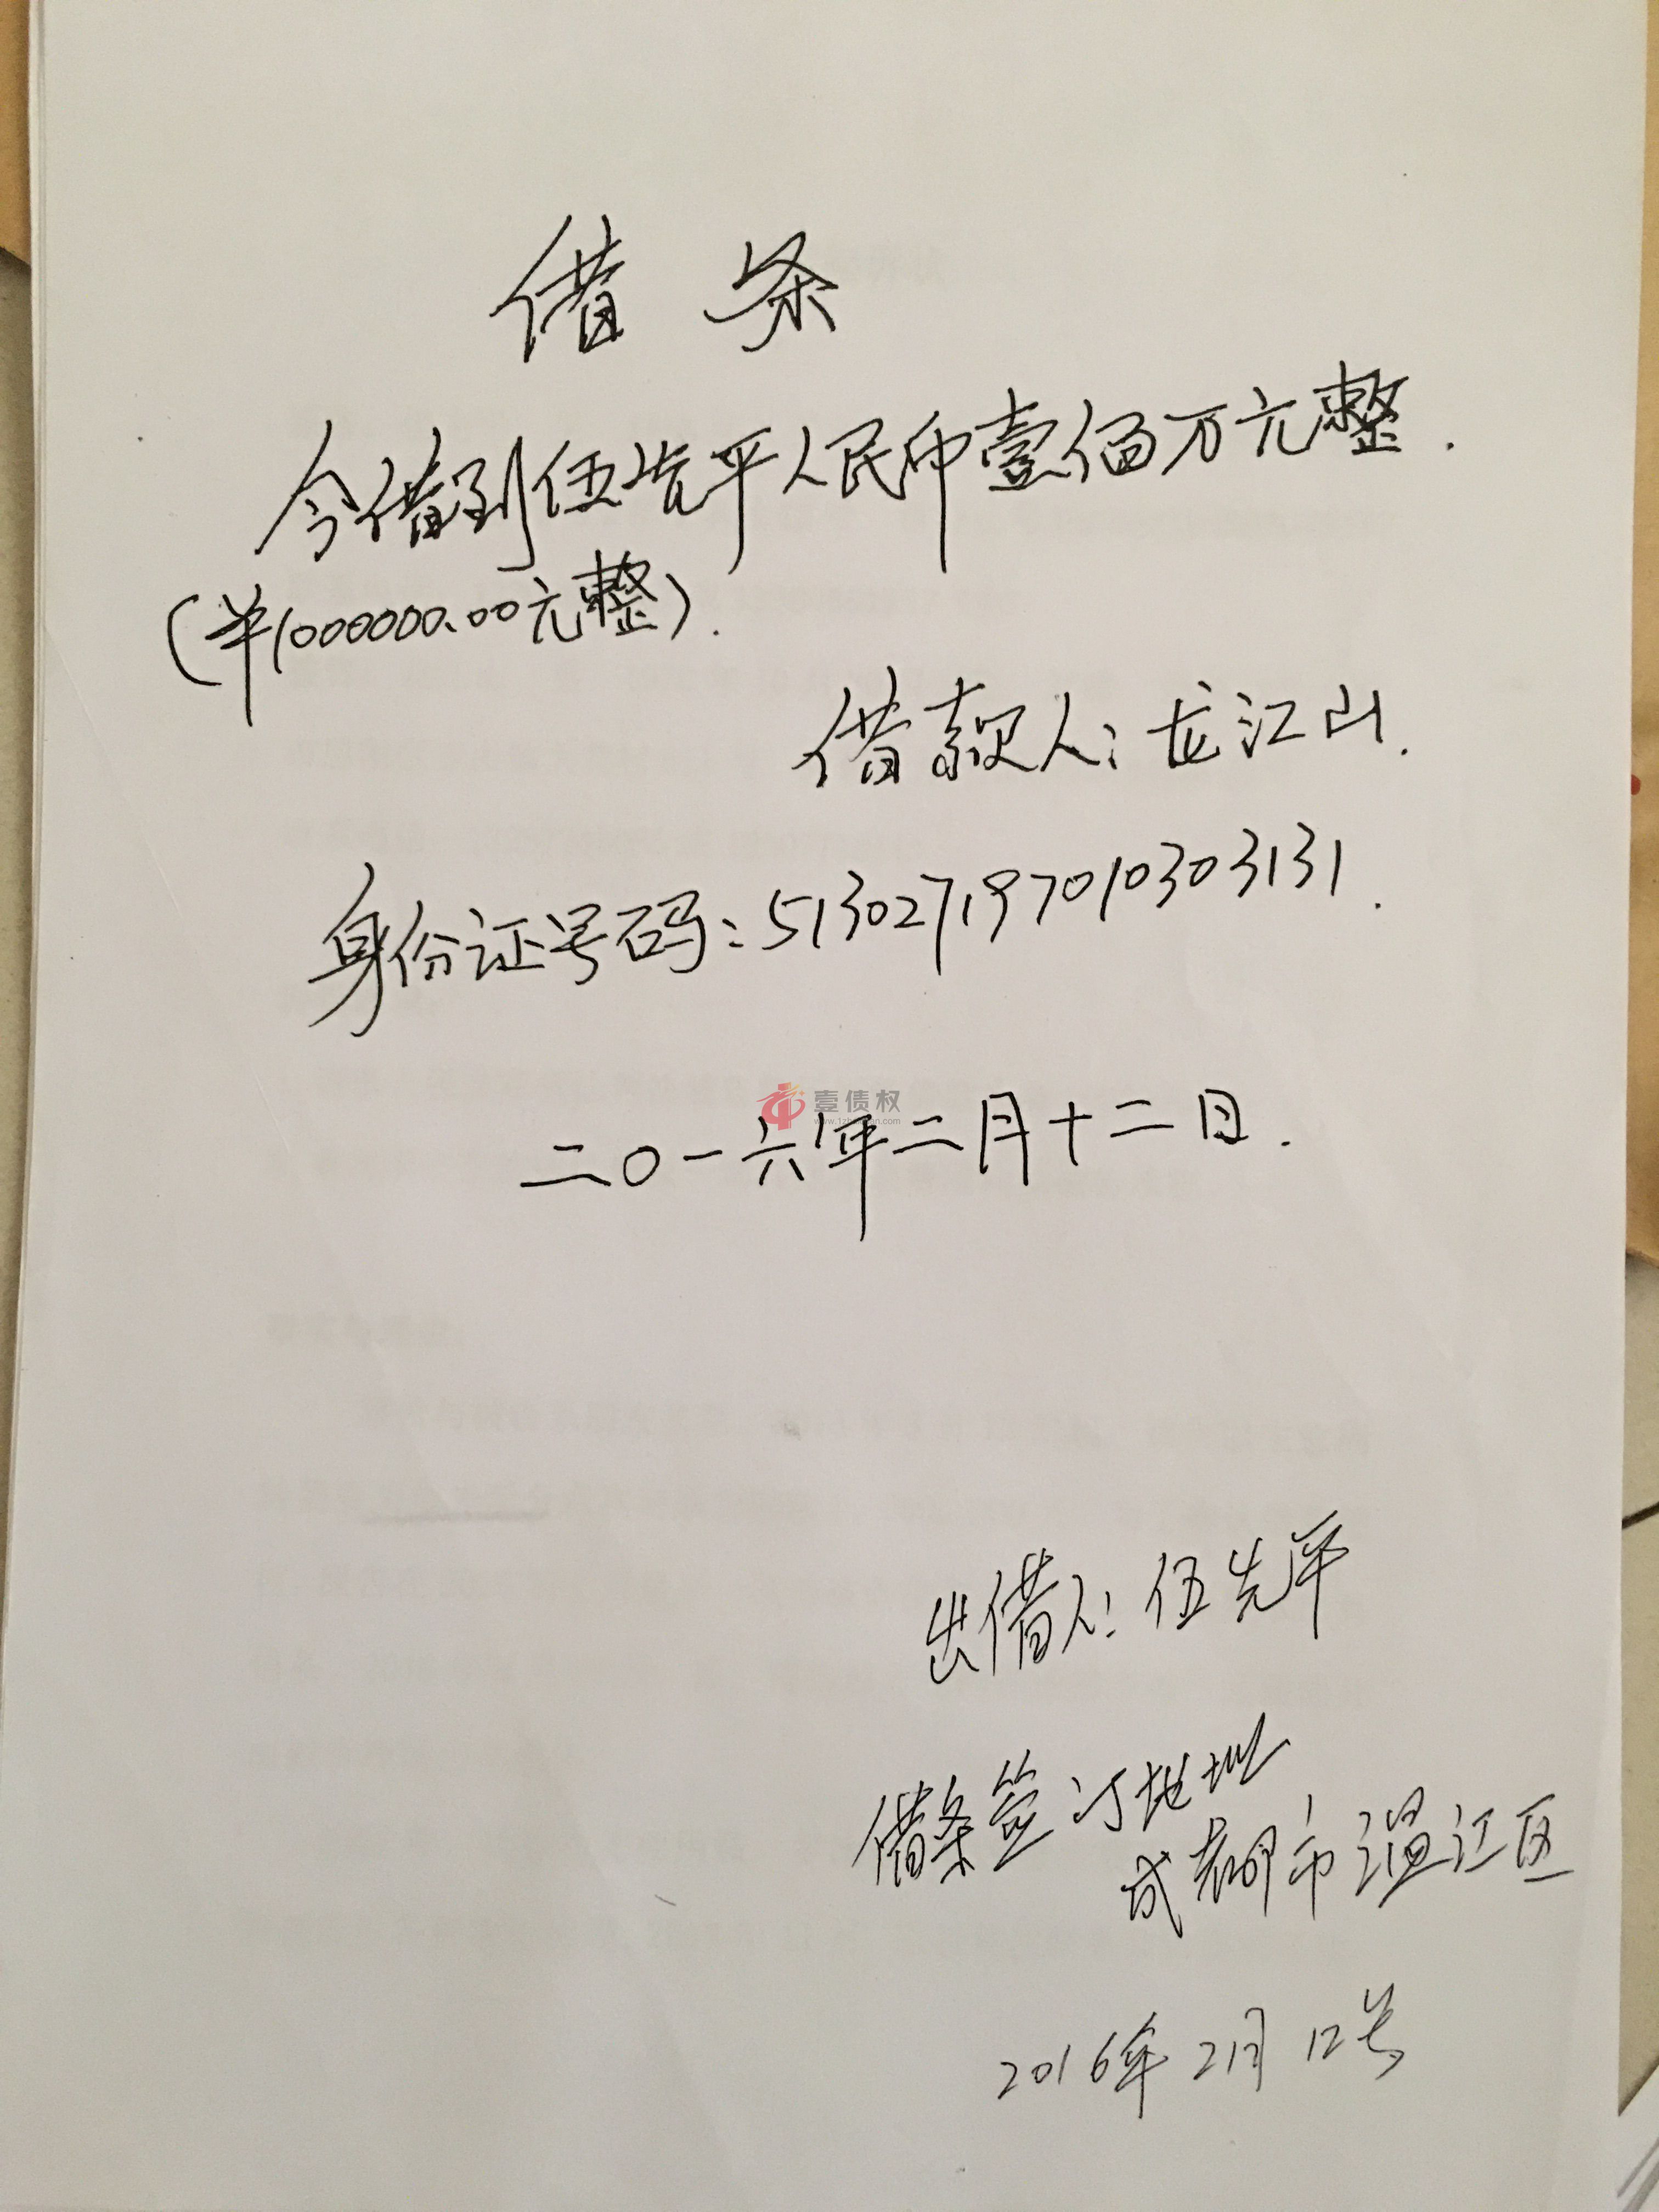 借 条
今借到伍先平人民币壹佰万元整.
(¥1000000.00元整).
借款人:龙江山.
身份证号码:513027197010303131.
壹债权
二〇一六年二月十二日.
出借人:伍先平
借条签订地址
成都市温江区
2016年2月12号